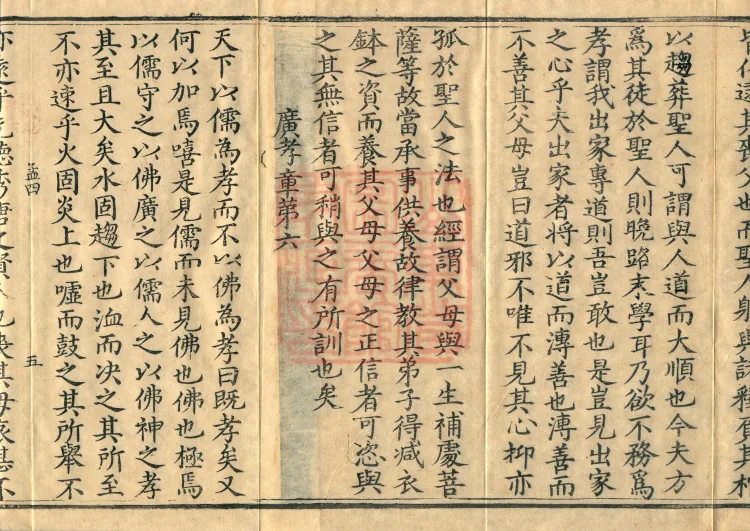 以趨葬聖人可謂與人道而大順也今夫方
爲其徒於聖人則晚路末學耳乃欲不務爲
孝謂我出家專道則吾豈敢也是豈見出家
之心乎夫出家者將以道而溥善也溥善而
不善其父母豈曰道邪不唯不見其心抑亦
孤於聖人之法也經謂父母與一生補處菩
薩等故當承事供養故律教其弟子得減衣
鉢之資而養其父母父母之正信者可恣與
之其無信者可稍與之有所訓也矣
廣孝章第六
天下以儒為孝而不以佛為孝曰既孝矣又
何以加焉嘻是見儒而未見佛也佛也極焉
以儒守之以佛廣之以儒人之以佛神之孝
其至且大矣水固趨下也洫而决之其所至
不亦速乎火固炎上也噓而鼓之其所舉不
孟四
五